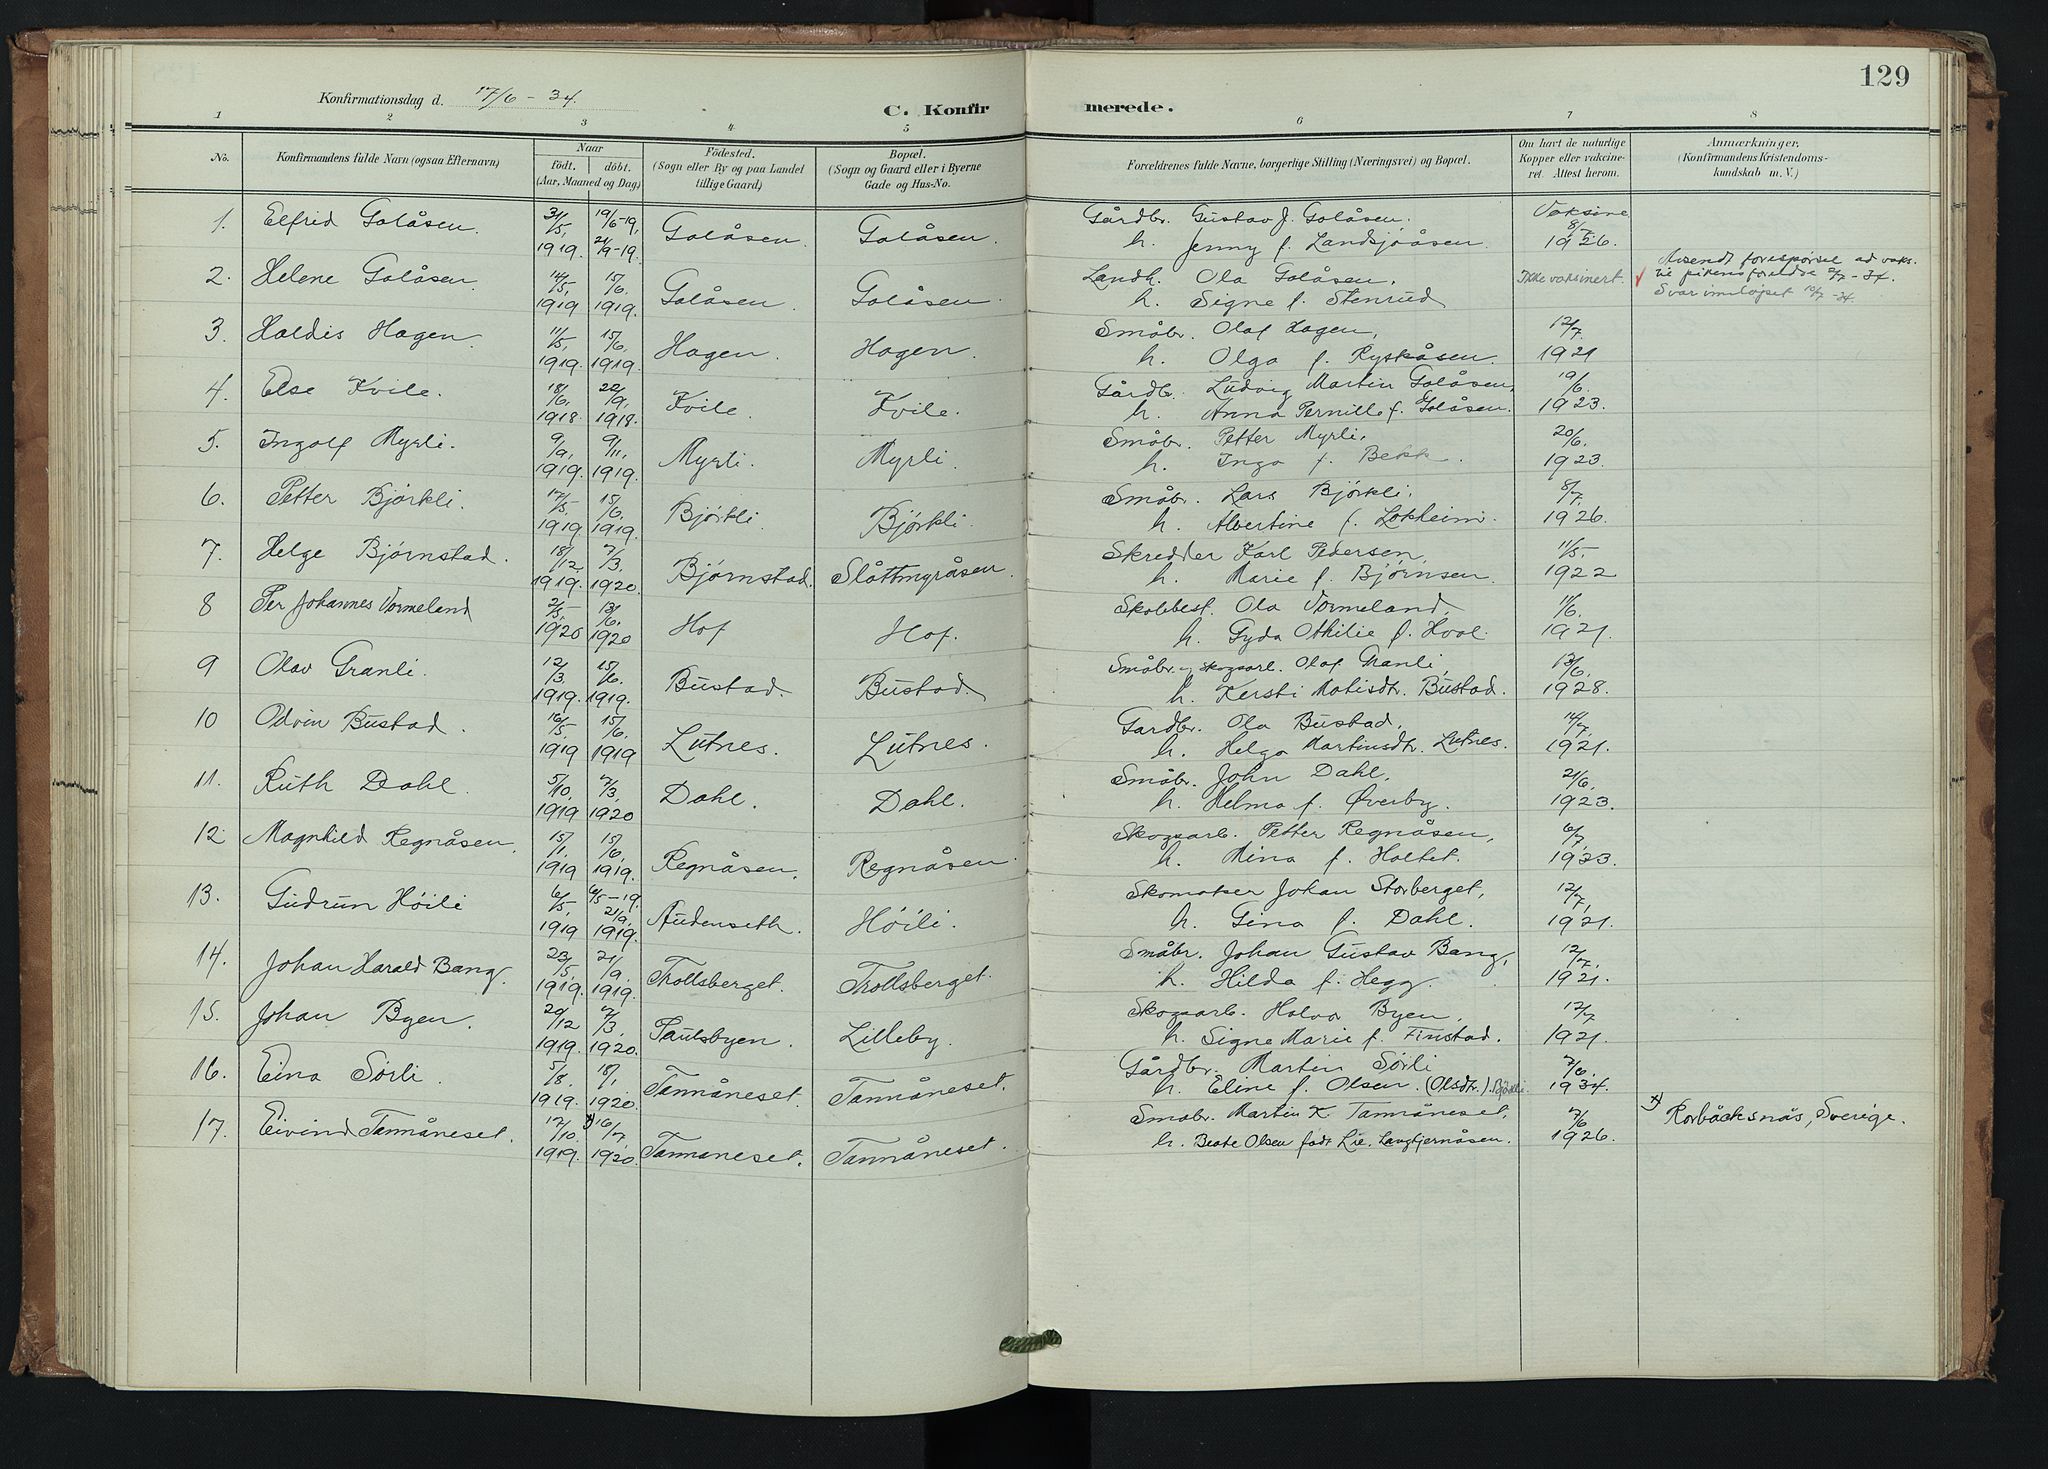 129
Konfirmationsdag d. 17/6 - 34.
C. Konfirmerede.
1 2 3 4 5 6 7 8
No. Konfirmandens fulde Navn (ogsaa Efternavn) Naar födt. döbt. (Aar, Maaned og Dag) Födested. (Sogn eller By og paa Landet tillige Gaard) Bopæl. (Sogn og Gaard eller i Byerne Gade og Hus-No. Forældrenes fulde Navne, borgerlige Stilling (Næringsvei) og Bopæl. Om havt de naturlige Kopper eller vakcineret. Attest herom. Anmærkninger, (Konfirmandens Kristendomskundskab m. V.)
1. Elfrid Galåsen. 31/5, 1919. 19/6-19, 21/9-19. Galåsen. Galåsen. Gårdbr. Gustav J. Galåsen. Vaksine 8/7
h. Jenny f. Landsjøåsen. 1926.
2. Helene Galåsen. 14/5, 1919 15/6. 1919. Galåsen. Galåsen. Landh. Ola Galåsen, Ikke vaksinert. Avsendt forespørsel ad vaks. til pikens foreldre 2/7-34.
h. Signe f. Stenrud Svar innløpet 10/7-34.
3. Haldis Hagen. 11/5, 1919. 15/6, 1919. Hagen. Hagen. Småbr. Olaf Hagen, 12/7
h. Olga f. Ryskåsen. 1921
4. Else Kvile. 18/6, 1918. 22/9, 1918. Kvile. Kvile. Gårdb. Ludvig Martin Galåsen, 19/6.
h. Anna Pernille f. Galåsen. 1923.
5. Ingolf Myrli. 9/9, 1919. 9/11, 1919. Myrli. Myrli. Småbr. Petter Myrli, 20/6.
h. Inga f. Bekk. 1923.
6. Petter Björkli. 17/5. 1919. 15/6. 1919. Björkli. Björkli. Småbr. Lars Björkli, 8/7.
h. Albertine f. Løkheim. 1926.
7. Helge Bjørnstad. 18/12, 1919. 7/3. 1920. Bjørnstad. Slåttmyråsen. Skredder Karl Pedersen, 11/5-
h. Marie f. Bjørnsen. 1922
8 Per Johannes Vormeland 2/5- 1920 13/6. 1920 Hof Hof. Skolebest. Ola Vormeland, 11/6.
h. Gyda Othilie f. Hval. 1921.
9 Olav Granli. 12/3. 1919. 15/6. 1919. Bustad. Bustad. Småbr. og skogsarb. Olaf Granli, 13/6.
h. Kersti Matisdtr. Bustad. 1928.
10 Odvin Bustad. 16/5. 1919 15/6. 1919 Lutnes. Lutnes. Gardbr. Ola Bustad, 14/7.
h. Helga Martinsdtr. Lutnes. 1921.
11. Ruth Dahl. 5/10, 1919 7/3, 1920 Dahl. Dahl. Småbr. John Dahl, 21/6.
h. Helma f. Øverby. 1923.
12. Magnhild Regnåsen. 15/1, 1919 15/6, 1919. Regnåsen. Regnåsen. Skogsarb. Petter Regnåsen, 6/7,
h. Mina f. Holtet. 1923.
13. Gudrun Höili 6/5, 1919 6/5-19. 21/9, 1919. Audenseth. Höili. Skomaker Johan Storberget, 12/7,
h. Gina f. Dahl. 1921.
14. Johan Harald Bang. 23/5, 1919. 21/9. 1919. Trollsberget. Trollsberget. Småbr. Johan Gustav Bang, 12/7.
h. Hilda f. Hegg. 1921.
15. Johan Byen. 20/12 1919. 7/3. 1920. Paulsbyen. Lilleby. Skogsarb. Halvor Byen, 12/7
h. Signe Marie f. Finstad. 1921.
16. Eina Sørli. 5/8. 1919. 18/1, 1920. Tannåneset. Tannåneset. Gårdbr. Martin Sørli 7/6.
h. Eline f. Olsen. (Olsdtr.) Björkli. 1934.
17. Eivind Tannåneset. 17/10. 1919. x) 16/7, 1920. Tannåneset. Tannåneset. Småbr. Martin K. Tannåneset, 7/6 x) Rørbäcksnäs, Sverige.
h. Beate Olsen født Lie. Langtjernåsen. 1926.